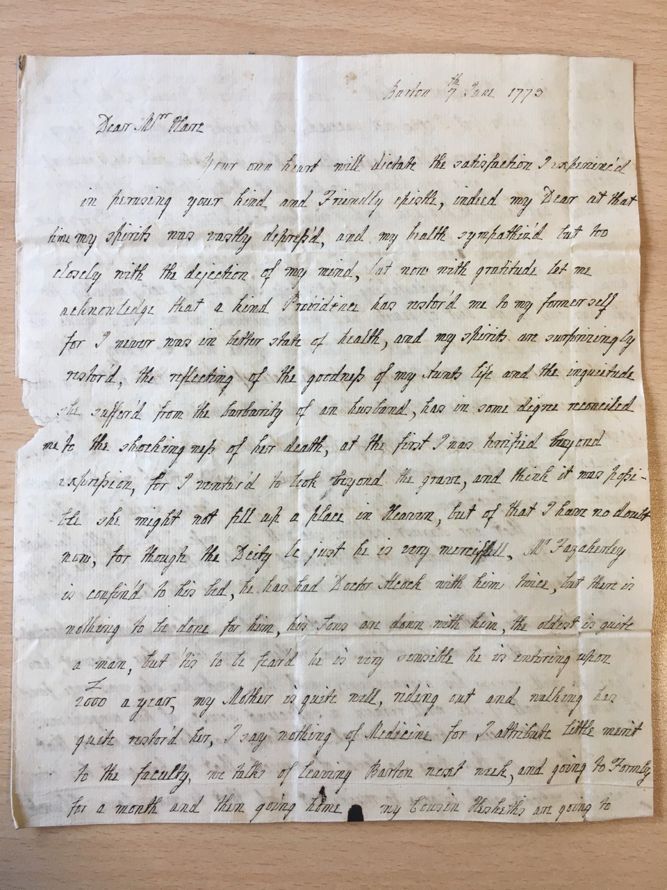 Barton 7th June 1773
Dear Mrs
Your own heart will dictate the satisfaction I experienc'd
in perusing your kind and Friendly epistle, indeed my Dear at that
time my spirits was vastly depress'd, and my health sympathiz'd but too
closely with the dejection of my mind, but now with gratitude let me
acknowledge that a kind Providence has restor'd me to my former self
for I never was in better state of health, and my spirits are surprizingly
restor'd, the reflecting of the goodness of my Aunts life and the inquietude
she suffer'd from the barbarity of an husband, has in some degree reconciled
me to the shockingness of her death, at the first I was terrified beyond
expression, for I ventur'd to look beyond the grave, and think it was possi-
ble she might not fill up a place in Heaven, but of that I have no doubt
now, for though the Deity be just he is very mercifull, Mr Fazakerley
is confin'd to his bed, he has had Doctor with him twice, but there is
nothing to be done for him, his sons are down with him, the oldest is quite
a man, but 'tis to be fear'd he is very sensible he is entering upon
£2000 a year, my Mother is quite well, riding out and walking has
quite restor'd her, I say nothing of Medicine for I attribute little merit
to the faculty, we talks of leaving Barton next week, and going to Formby
for a month and then going home my Cousin Heskeths are going to